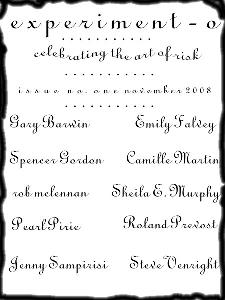 experiment-o
celebrating the art of risk
issue no. one november 2008
Gary Barwin Emily Falvey
Spencer Gordon Camille Martin
rob mclennan Sheila E. Murphy
Pearl Pirie Roland Prevost
Jenny Sampirisi Steve Venright